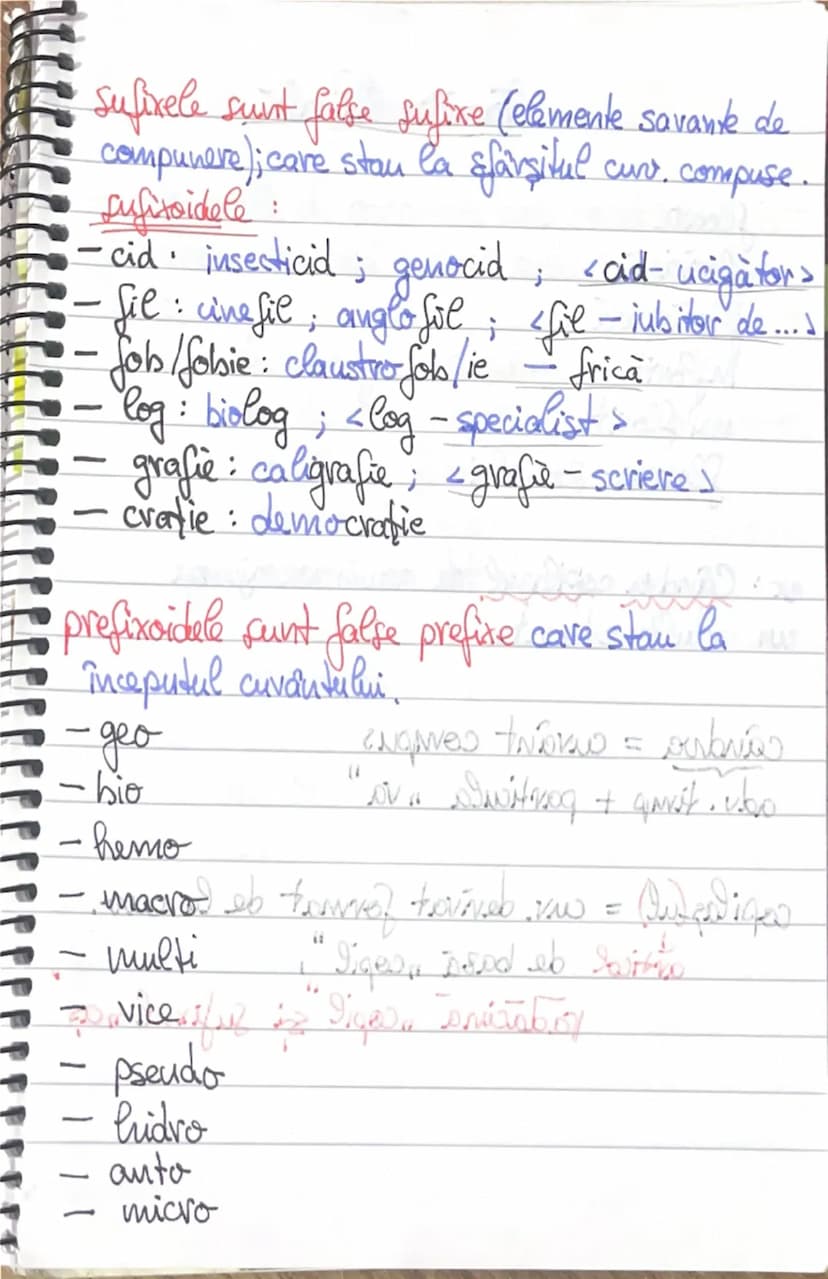 sufixele sunt false sufixe (elemente savante de
compunere); care stau la sfârșitul cuv. compuse.
sufixoidele :
- cid : insecticid ; genocid ; <cid - ucigător>
- fil : cinefil ; anglofil ; <fil - iubitor de ...>
- fob/fobie : claustrofob/ie - frică
- log : biolog ; <log - specialist>
- grafie : caligrafie ; <grafie - scriere>
- crație : democrație
prefixoidele sunt false prefixe care stau la
începutul cuvântului.
- geo
- bio
- hemo
- macro
- multi
- vice
- pseudo
- hidro
- auto
- micro